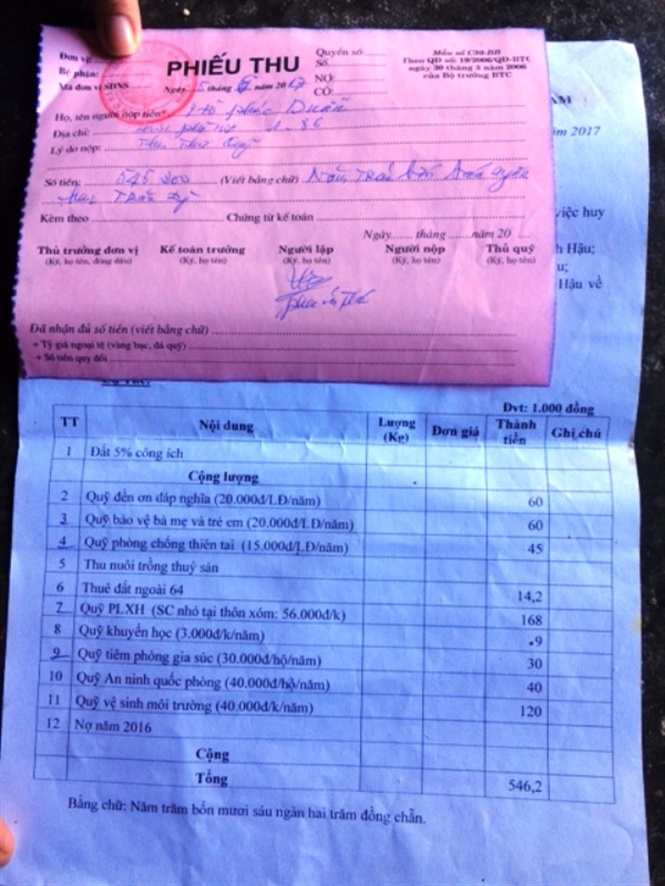 Đơn vị:
Bộ phận:
Mã đơn vị SDNS
PHIẾU THU
Ngày 5 tháng 6 năm 2017
Quyển số:
Số:
NỢ:
CÓ:
Mẫu số C30-BH
Theo QĐ số: 19/2006/QĐ-BTC
ngày 30 tháng 3 năm 2006
của Bộ trưởng BTC
Họ, tên người nộp tiền: Hồ Phúc Duẩn
Địa chỉ:
Lý do nộp: Thu
Số tiền: (Viết bằng chữ) Năm Trăm
hai Trăm
Kèm theo Chứng từ kế toán
Ngày tháng năm 20
Thủ trưởng đơn vị Kế toán trưởng Người lập Người nộp Thủ quỹ
(Ký, họ tên, đóng dấu) (Ký, họ tên) (Ký, họ tên) (Ký, họ tên) (Ký, họ tên)
Đã nhận đủ số tiền (viết bằng chữ)
+ Tỷ giá ngoại tệ (vàng bạc, đá quý)
+ Số tiền quy đổi
AM
năm 2017
việc huy
h Hậu;
u;
Hậu về
Đvt: 1.000 đồng
TT Nội dung Lượng (Kg) Đơn giá Thành tiền Ghi chú
1 Đất 5% công ích
Cộng lượng
2 Quỹ đền ơn đáp nghĩa (20.000đ/LĐ/năm) 60
3 Quỹ bảo vệ bà mẹ và trẻ em (20.000đ/LĐ/năm) 60
4 Quỹ phòng chống thiên tai (15.000đ/LĐ/năm) 45
5 Thu nuôi trồng thuỷ sản
6 Thuê đất ngoài 64 14,2
7 Quỹ PLXH (SC nhỏ tại thôn xóm: 56.000đ/k) 168
8 Quỹ khuyến học (3.000đ/k/năm) 9
9 Quỹ tiêm phòng gia súc (30.000đ/hộ/năm) 30
10 Quỹ An ninh quốc phòng (40.000đ/hộ/năm) 40
11 Quỹ vệ sinh môi trường (40.000đ/k/năm) 120
12 Nợ năm 2016
Cộng
Tổng 546,2
Bằng chữ: Năm trăm bốn mươi sáu ngàn hai trăm đồng chẵn.